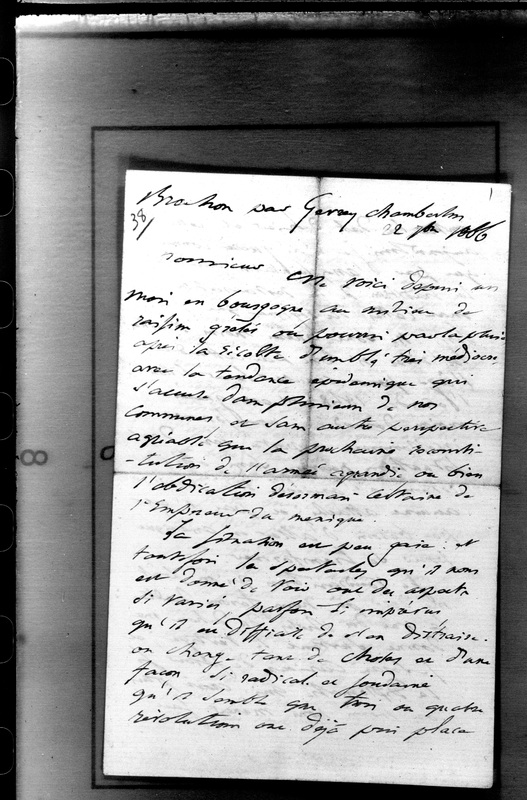 Brochon par Gevrey Chambertin
38/
22 7bre 1866
1
Monsieur Me voici depuis un
mois en bourgogne au milieu de
raisins grêlés ou pourris par la pluie
après la récolte d'emblé très médiocre
avec la tendance épidémique qui
s'accuse dans plusieurs de nos
communes et sans autre perspective
agréable que la prochaine reconsti-
-tution de l'armée agrandie ou bien
l'abdication désormais certaine de
l'Empereur du mexique.
La situation est peu gaie. et
toutefois le spectacle qu'il nous
est donné de voir a des aspects
si variés, parfois si imprévus
qu'il est difficile de s'en distraire.
on change tant de choses et d'une
façon si radicale et soudaine
qu'il semble que trois ou quatre
révolutions ont déjà pris place